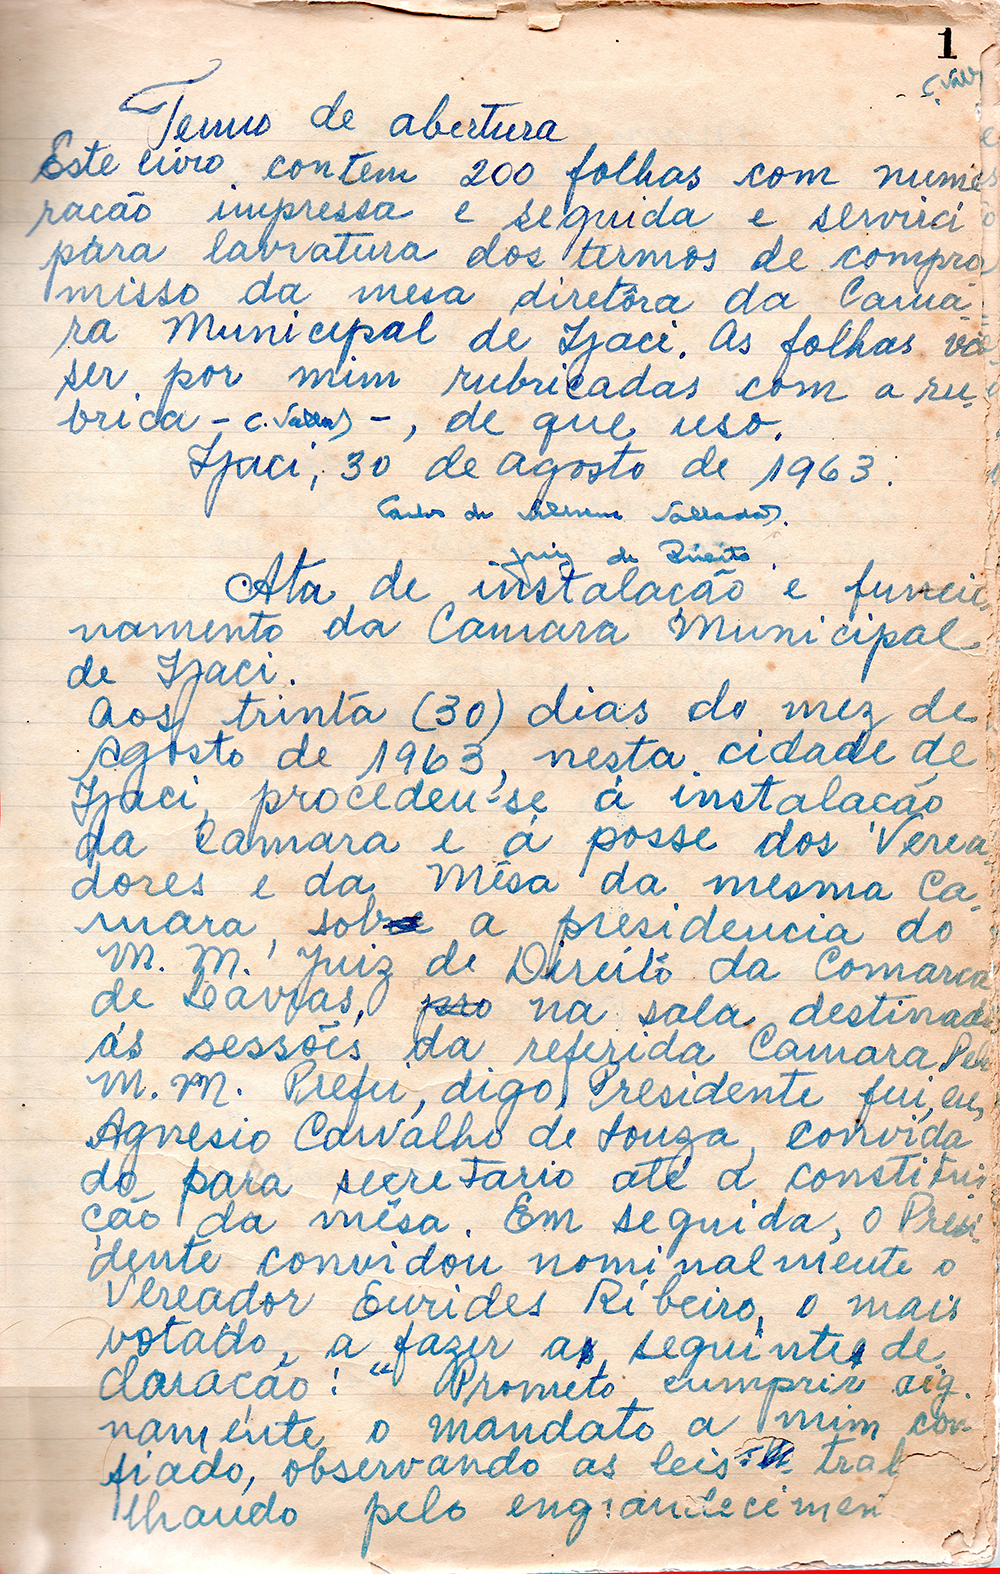 1
C. Vall
Termo de abertura
Este livro contem 200 folhas com nume
ração impressa e seguida e servirá
para lavratura dos termos de compro
misso da mesa diretôra da Cama-
ra Municipal de Ijaci. As folhas vão
ser por mim rubricadas com a ru-
brica - C. Vallad) -, de que uso.
Ijaci, 30 de agosto de 1963.
Carlos de Valladão.
Juiz de Direito.
Ata de instalação e funcio
namento da Camara Municipal
de Ijaci.
Aos trinta (30) dias do mez de
Agosto de 1963, nesta cidade de
Ijaci, procedeu-se á instalação
da Camara e á posse dos Verea
dores e da Mêsa da mesma Ca-
mara, sobre a presidencia do
M. M. Juiz de Direito da Comarca
de Lavras, na sala destinada
ás sessões da referida Camara. Pelo
M. M. Prefei, digo, Presidente fui, eu,
Agnesio Carvalho de Souza, convida
do para secretario até a constitui
ção da mêsa. Em seguida, o Presi-
dente convidou nominalmente o
Vereador Eurides Ribeiro, o mais
votado, a fazer a seguinte de
claração: "Prometo cumprir dig-
namente o mandato a mim con-
fiado, observando as leis trab
lhando pelo engrandecimen